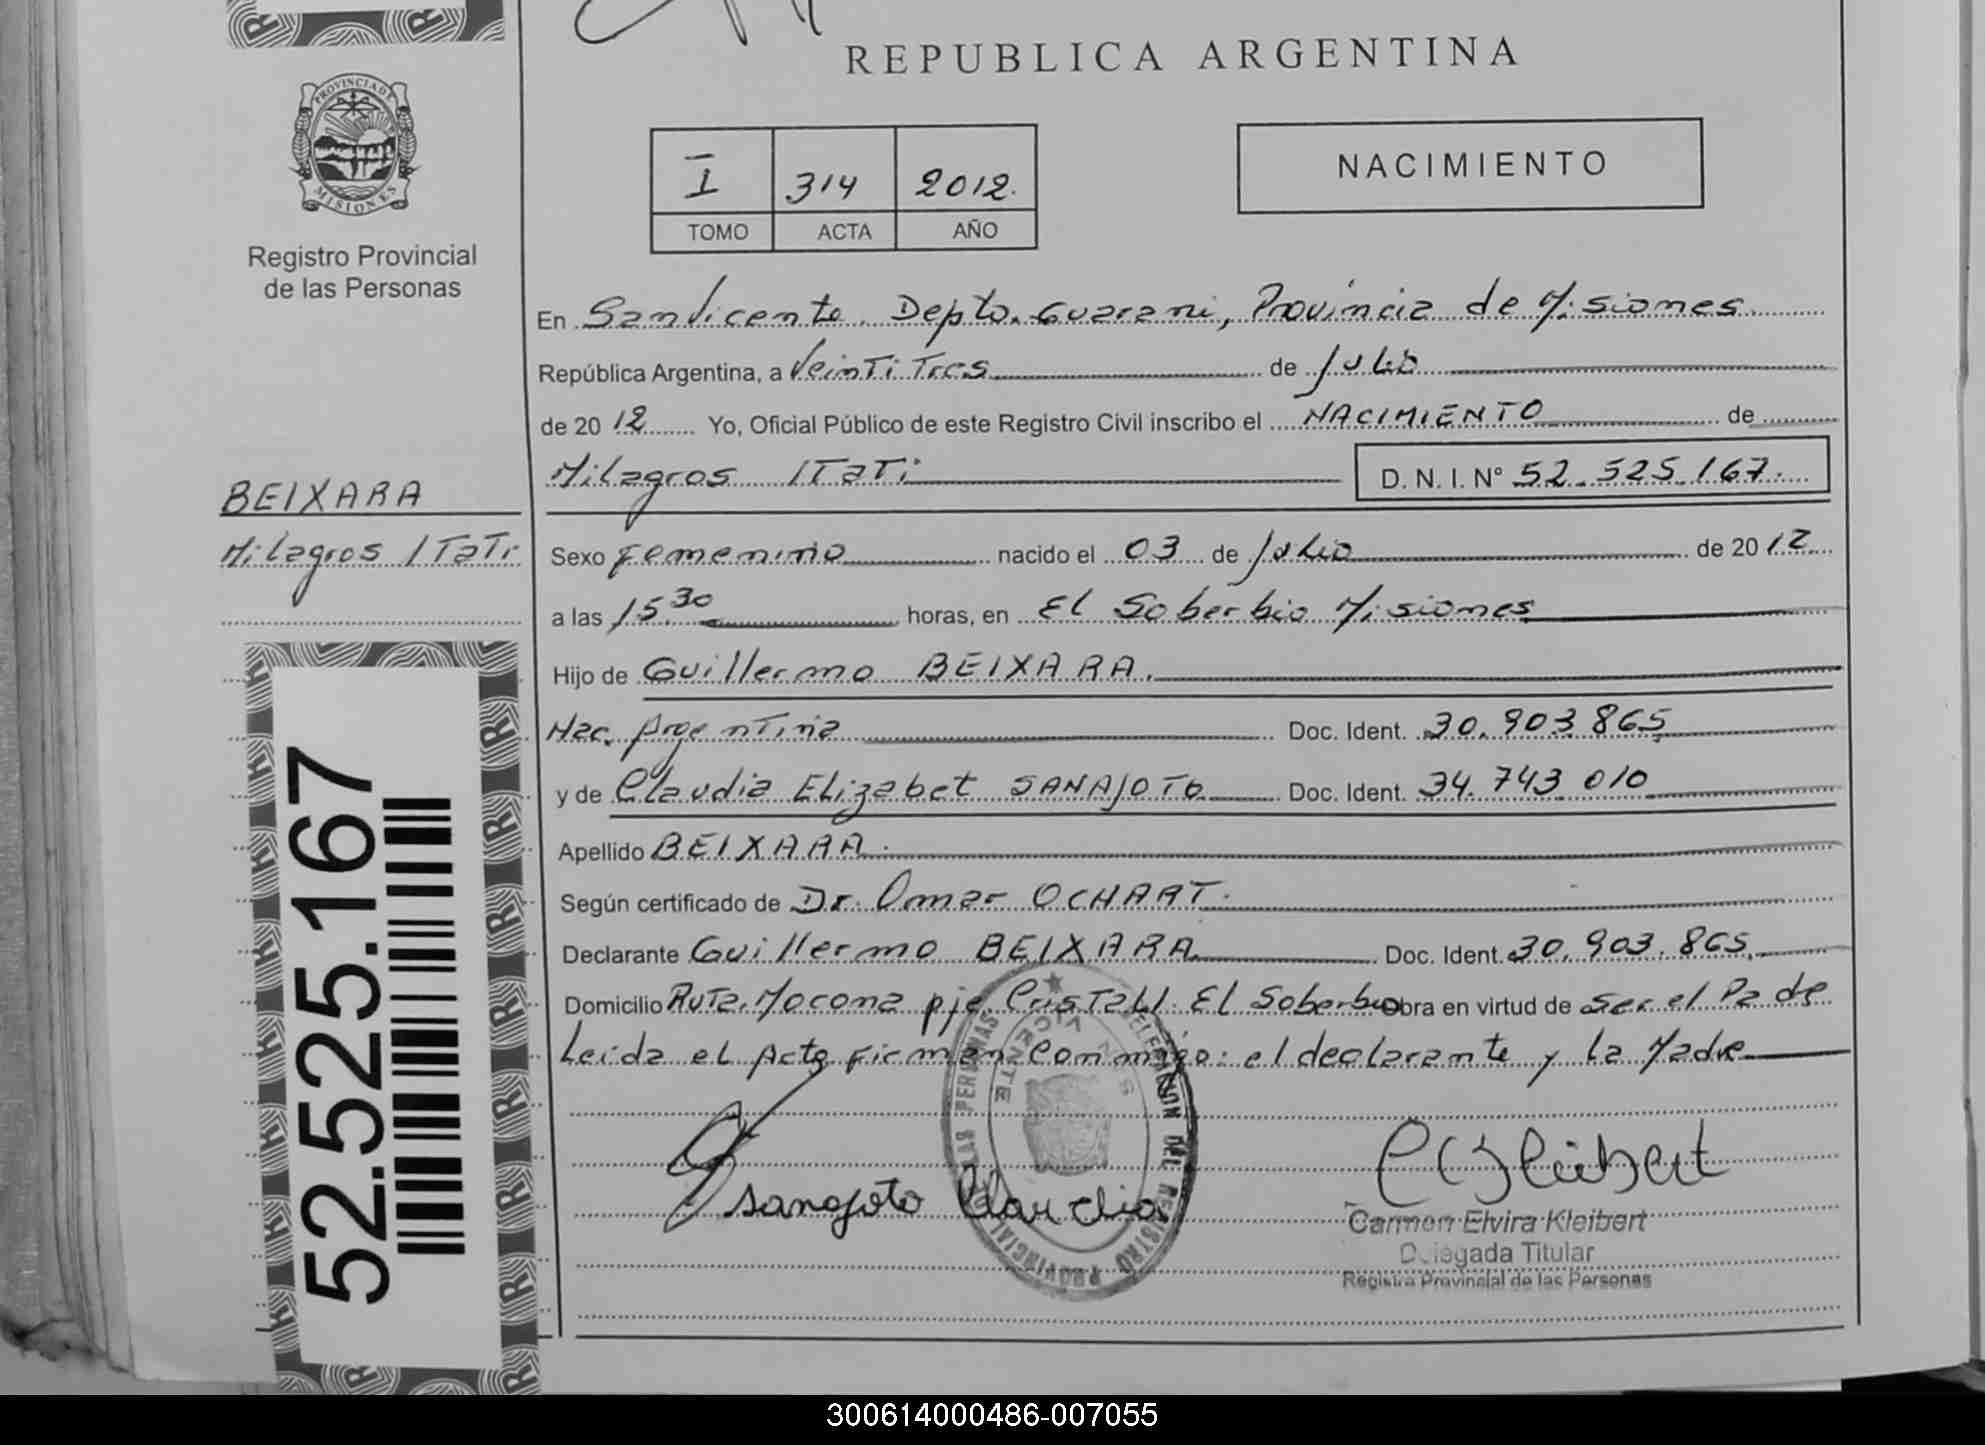 REPUBLICA ARGENTINA
PROVINCIA DE
MISIONES
Registro Provincial
de las Personas
I 314 2012.
TOMO ACTA AÑO
NACIMIENTO
En San Vicente. Depto. Guarani, Provincia de Misiones
República Argentina, a Veinti Tres de Julio
de 20 12 Yo, Oficial Público de este Registro Civil inscribo el NACIMIENTO de
Milagros ITaTi D. N. I. N° 52.525.167.
BEIXARA
Milagros ITaTi
Sexo Femenino nacido el 03 de Julio de 20 12
a las 15.30 horas, en El Soberbio Misiones
Hijo de Guillermo BEIXARA.
Nac. ArgenTina Doc. Ident. 30.903.865
y de Claudia Elizabet SANAJOTO Doc. Ident. 34.743.010
Apellido BEIXARA.
Según certificado de Dr. Omar OCHART.
Declarante Guillermo BEIXARA Doc. Ident. 30.903.865
Domicilio RuTa Mocona pje CrisTall El Soberbio obra en virtud de Ser el Padre
Leida el Acta Firman Conmigo: el declarante y la Madre
52.525.167
DELEGACION DEL REGISTRO PROVINCIAL DE LAS PERSONAS
SAN VICENTE
Sanajoto Claudia
C E Kleibert
Carmen Elvira Kleibert
Delegada Titular
Registro Provincial de las Personas
300614000486-007055